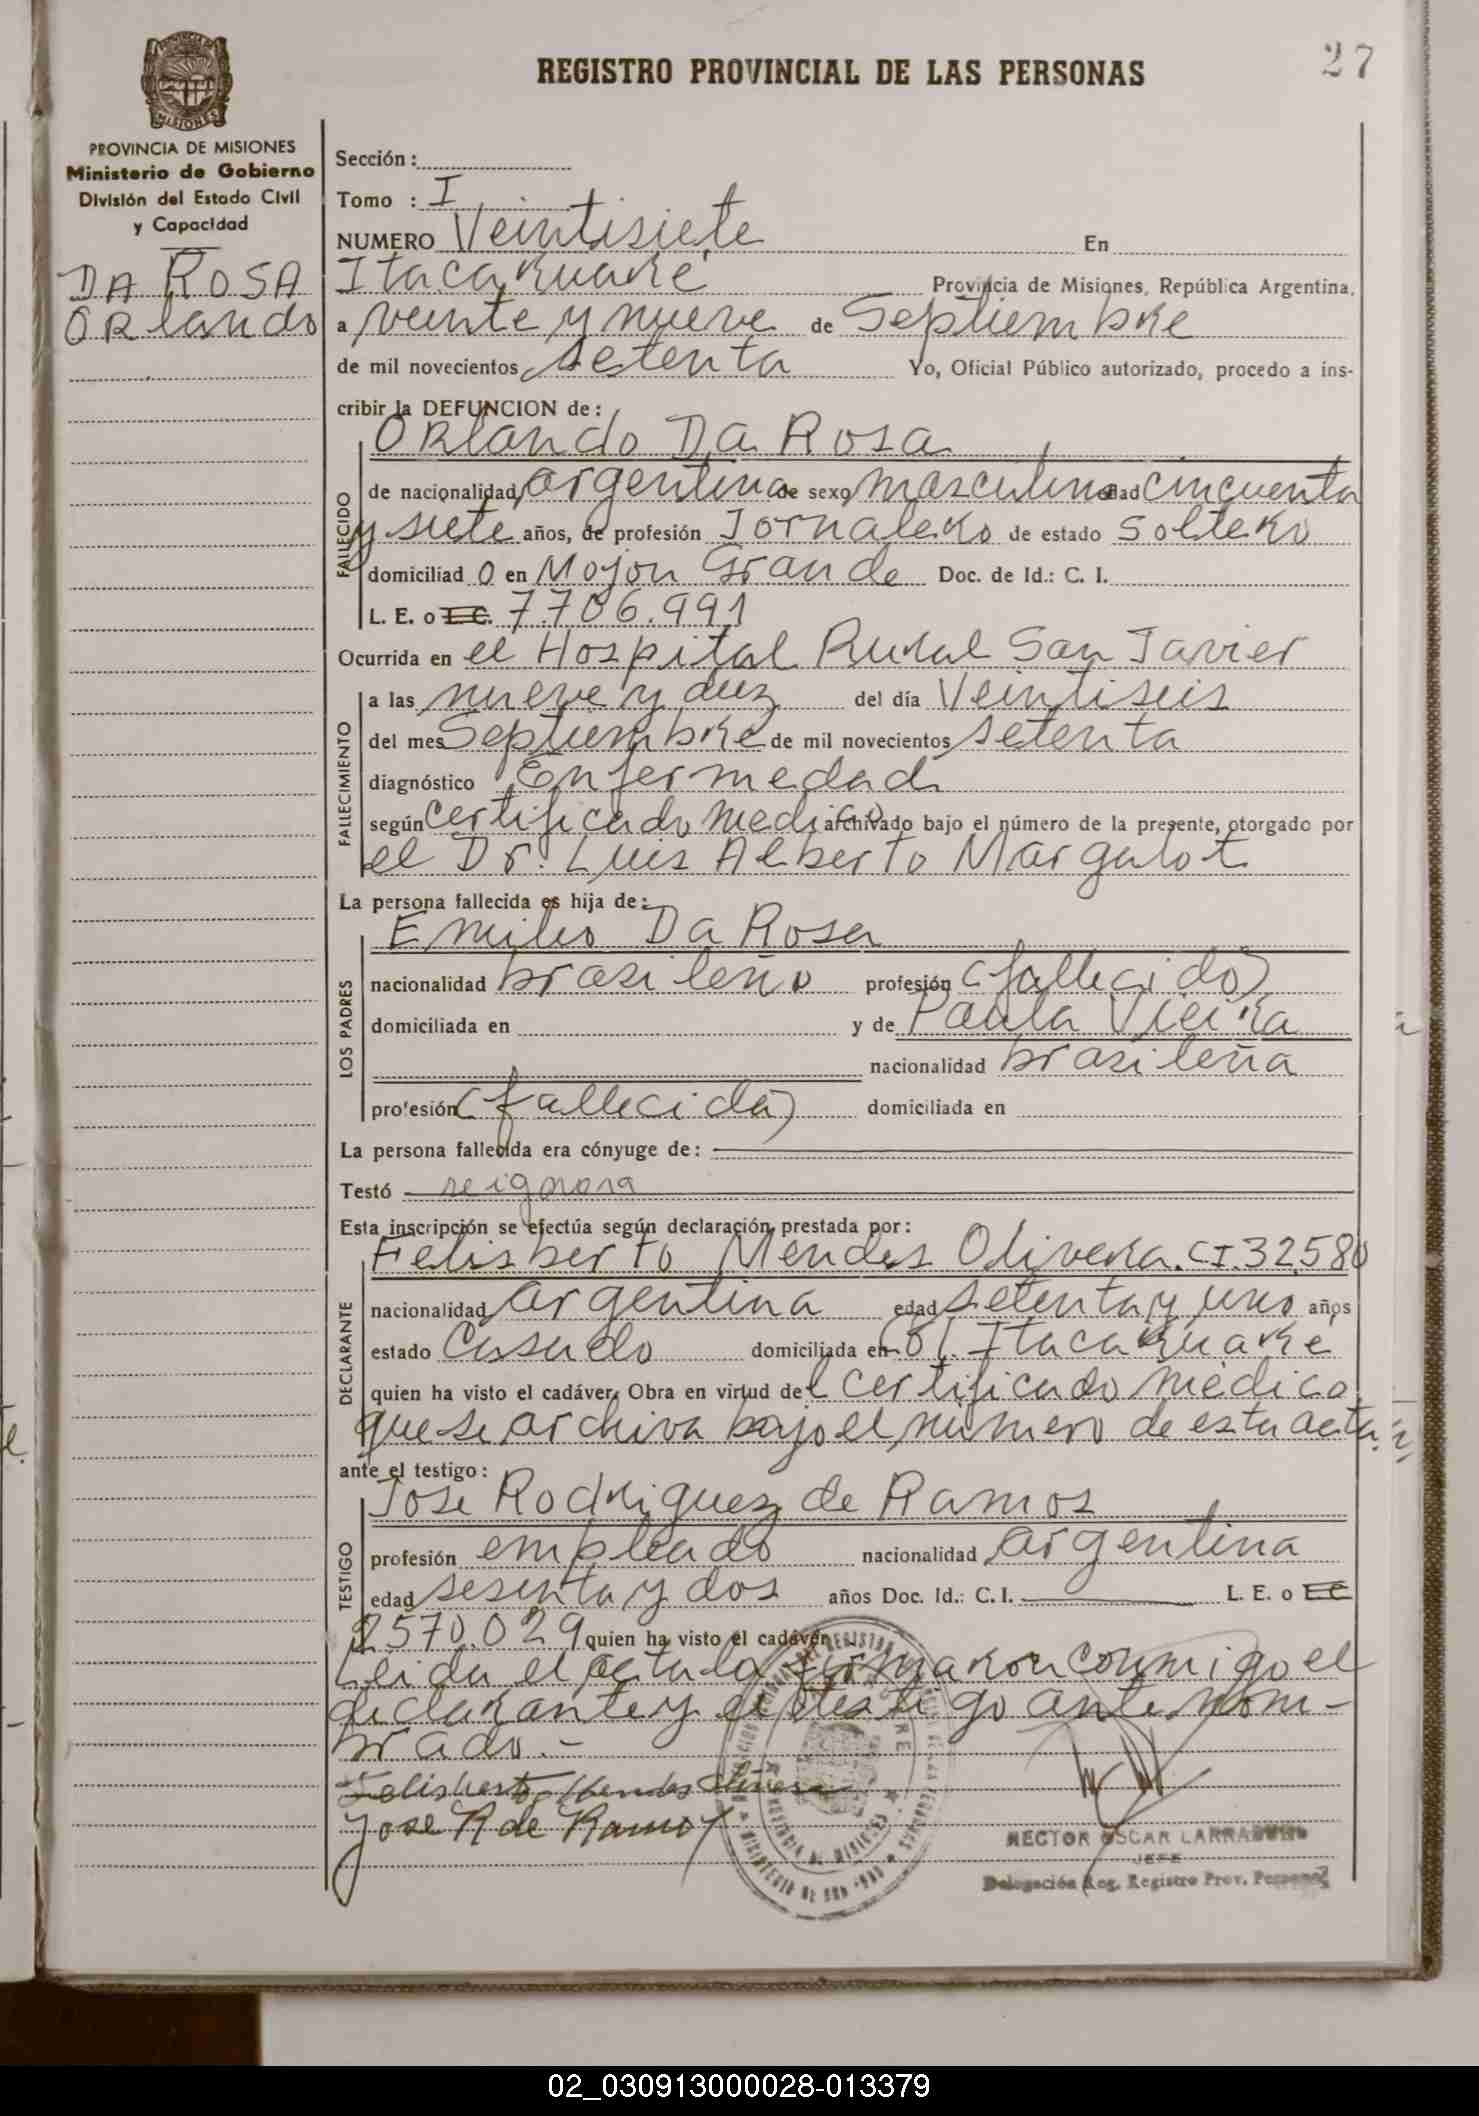 27
REGISTRO PROVINCIAL DE LAS PERSONAS
PROVINCIA DE MISIONES
MISIONES
PROVINCIA DE MISIONES
Ministerio de Gobierno
División del Estado Civil
y Capacidad
DA ROSA
Orlando
Sección :
Tomo : I
NUMERO Veintisiete En
Itacaruaré Provincia de Misiones, República Argentina,
a veinte y nueve de Septiembre
de mil novecientos setenta Yo, Oficial Público autorizado, procedo a ins-
cribir la DEFUNCION de:
Orlando Da Rosa
FALLECIDO
de nacionalidad argentina de sexo masculino edad cincuenta
y siete años, de profesión Jornalero de estado Soltero
domiciliad o en Mojon Grande Doc. de Id.: C. I.
L. E. o L.C. 7.706.991
Ocurrida en el Hospital Rural San Javier
FALLECIMIENTO
a las nueve y diez del día Veintiseis
del mes Septiembre de mil novecientos setenta
diagnóstico Enfermedad
según certificado medico archivado bajo el número de la presente, otorgado por
el Dr. Luis Alberto Margalot
La persona fallecida es hija de:
LOS PADRES
Emilio Da Rosa
nacionalidad brasileño profesión (fallecido)
domiciliada en y de Paula Vieira
nacionalidad brasileña
profesión (fallecida) domiciliada en
La persona fallecida era cónyuge de:
Testó se ignora
Esta inscripción se efectúa según declaración prestada por:
DECLARANTE
Felisberto Mendes Olivera. CI.32.580
nacionalidad argentina edad setenta y uno años
estado Casado domiciliada en Itacaruaré
quien ha visto el cadáver. Obra en virtud del certificado médico
que se archiva bajo el numero de esta acta.
ante el testigo:
TESTIGO
Jose Rodriguez de Ramos
profesión empleado nacionalidad argentina
edad sesenta y dos años Doc. Id.: C. I. L. E. o L C
2570.029 quien ha visto el cadáver
Leida el acta la firmaron conmigo el
declarante y el testigo antes nom-
brado.-
Felisberto Mendes Olivera
Jose R de Ramos
HECTOR OSCAR LARRA
JEFE
Delegación Reg. Registro Prov. Personas
02_030913000028-013379